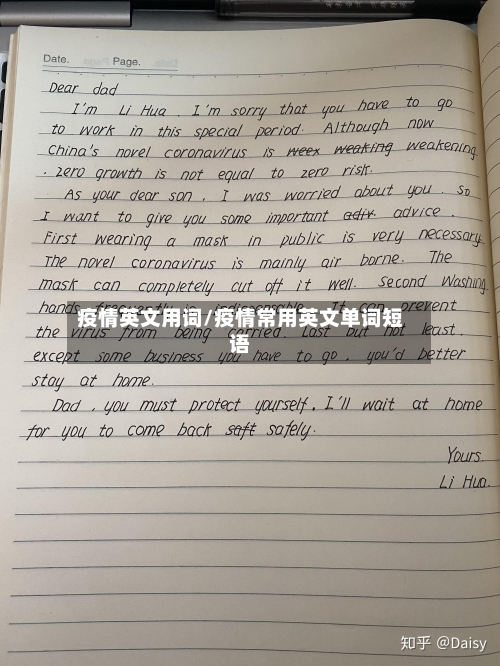 Date. Page.
Dear dad
I'm Li Hua. I'm sorry that you have to go
to work in this special period. Although now
China's novel coronavirus is weex weaking weakening
. zero growth is not equal to zero risk.
As your dear son, I was worried about you. So
I want to give you some important adiv. advice.
First wearing a mask in public is very necessary
The novel coronavirus is mainly air borne. The
mask can completely cut off it well. Second Washing
hands frequently is indispensable. It can prevent
疫情英文用词/疫情常用英文单词短
the virus from being carried. Last but not least.
语
except some business you have to go, you'd better
stay at home.
Dad, you must protect yourself. I'll wait at home
for you to come back saft safely.
Yours.
Li Hua.
知乎 @Daisy